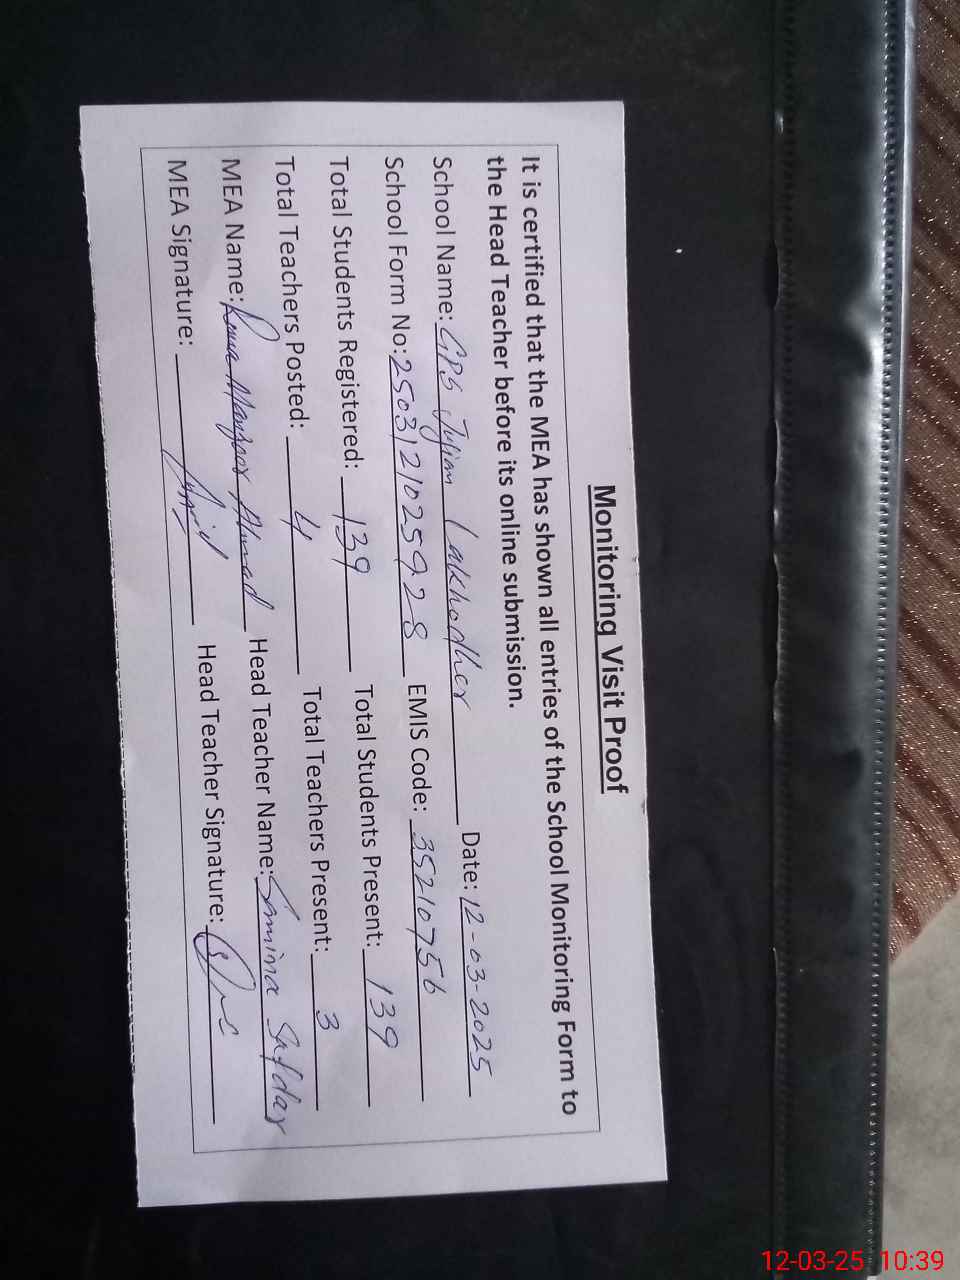 Monitoring Visit Proof
It is certified that the MEA has shown all entries of the School Monitoring Form to
the Head Teacher before its online submission.
School Name: GPS Jujian Lakhodher Date: 12-03-2025
School Form No: 25031210259928 EMIS Code: 35210756
Total Students Registered: 139 Total Students Present: 139
Total Teachers Posted: 4 Total Teachers Present: 3
MEA Name: Manzoor Ahmad Head Teacher Name: Samina Safdar
MEA Signature: Head Teacher Signature:
12-03-25 10:39